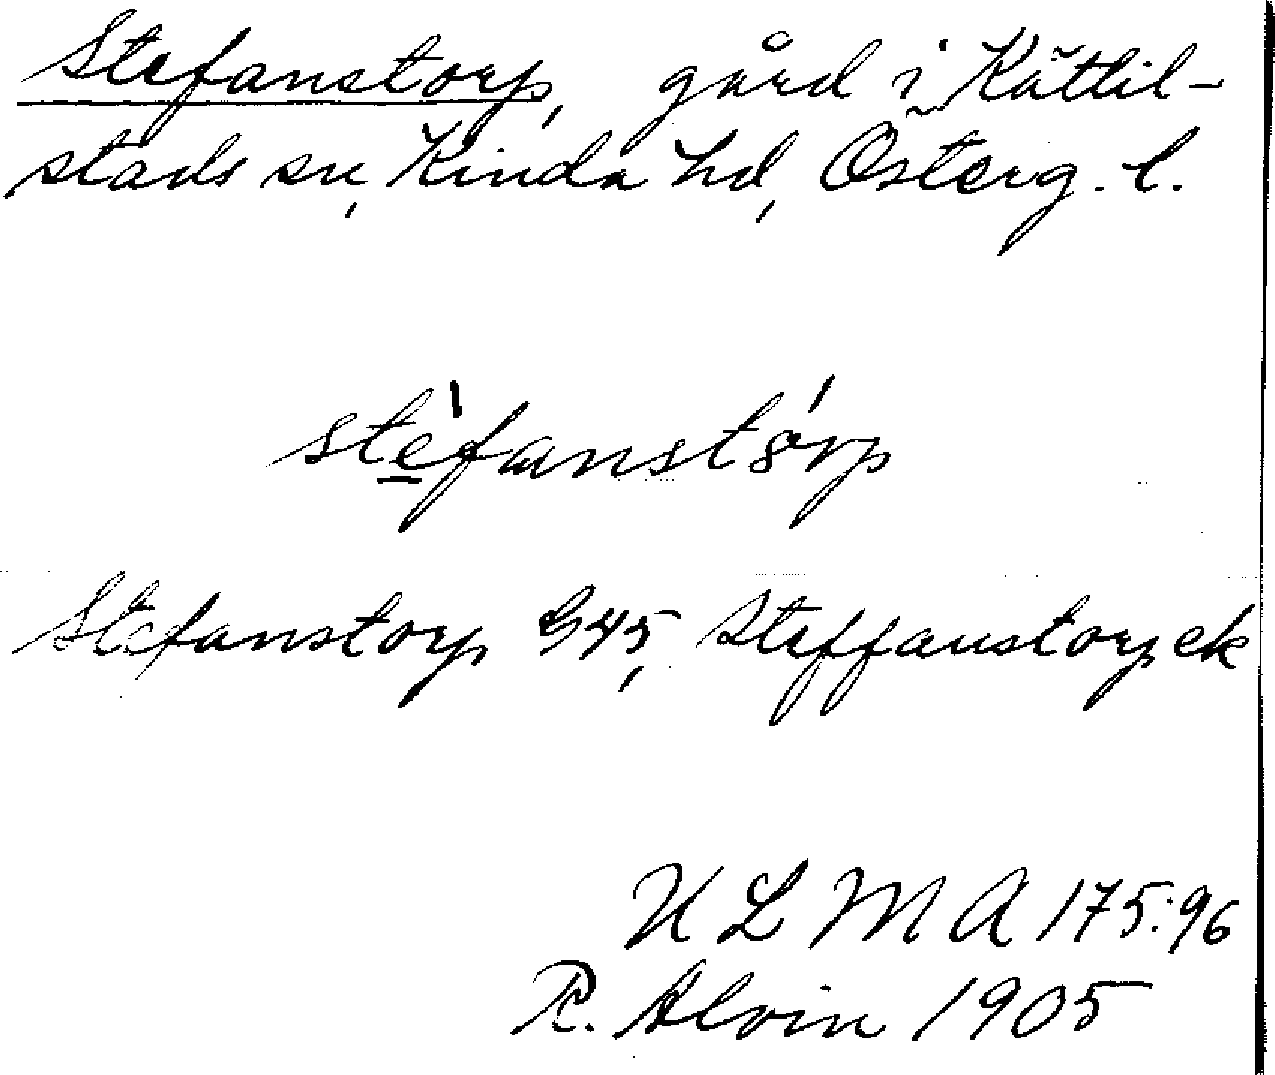 Stefanstorp, gård i Kättil-
stads sn, Kinda hd, Österg. l.
stèfanstórp
Stefanstorp G45, Steffanstorp ek
ULMA 175:96
R. Alvin 1905